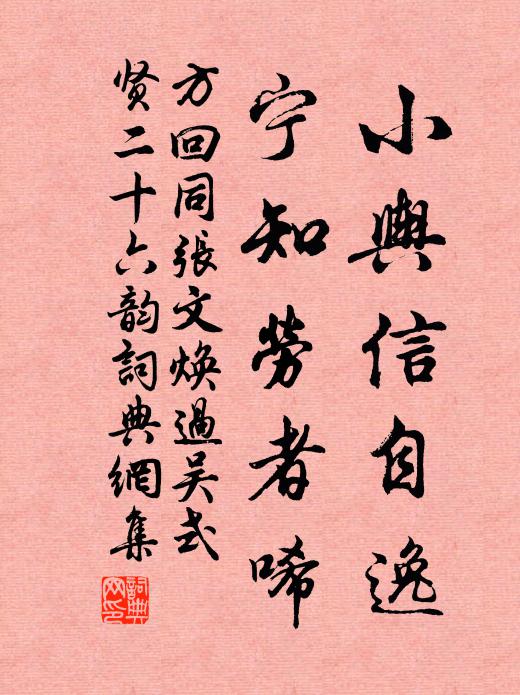 小輿信自逸
宁知勞者唏
方回同張文焕過吴式
贤二十六韵詞典網集